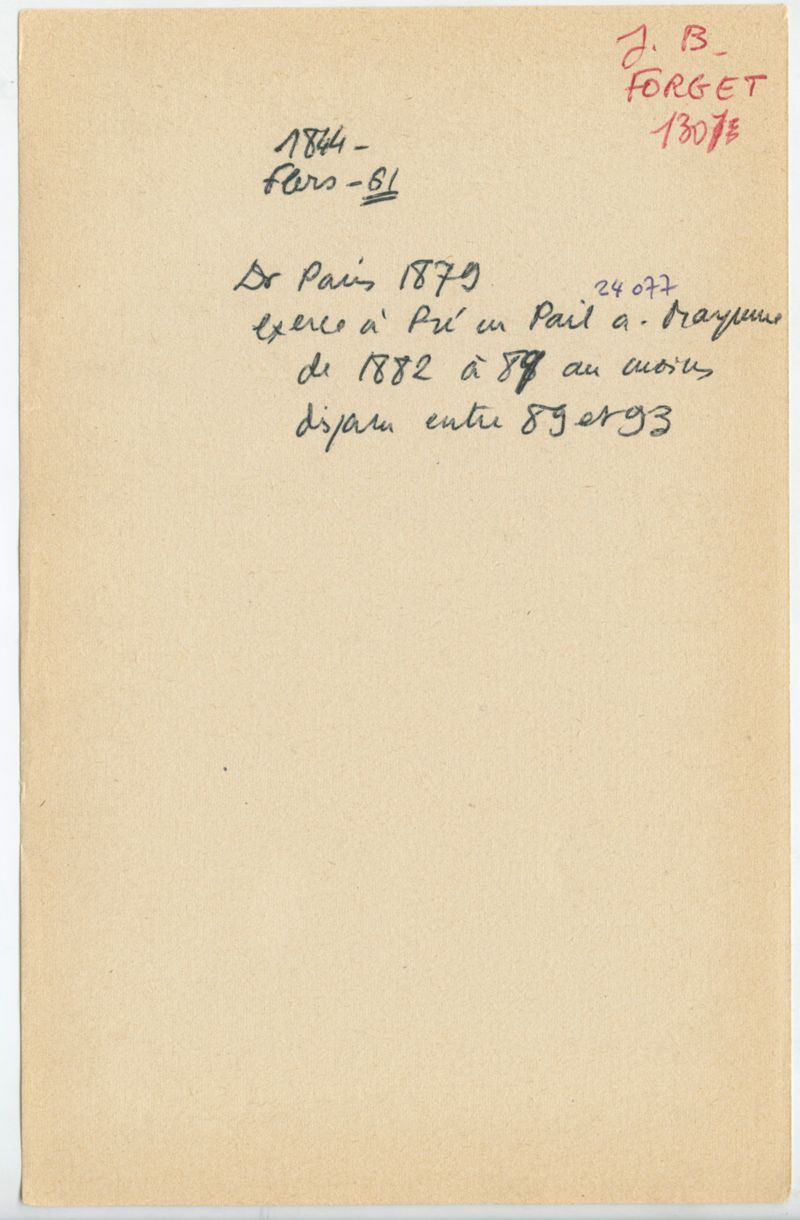 J. B_
FORGET
1844-
Flers - 61
Dr Paris 1879
24 077
exerce à Pré en Pail a. Mayenne
de 1882 à 89 au moins
disparu entre 89 et 93